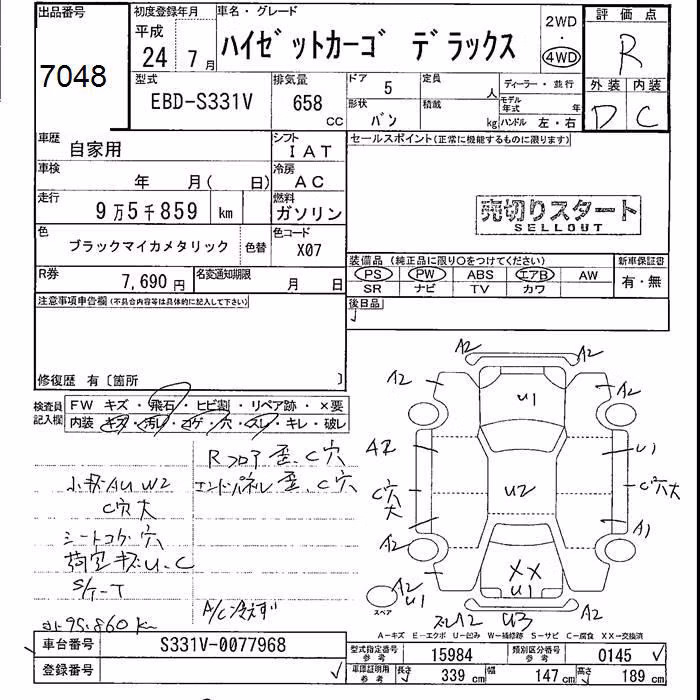 出品番号
7048
初度登録年月
平成
24 7月
車名・グレード
ハイゼットカーゴ デラックス
2WD
・
4WD
評価点
R
外装 内装
D C
型式
EBD-S331V
排気量
658
CC
ドア
5
形状
バン
定員
人
積載
kg
ディーラー・並行
モデル年式 年
ハンドル 左・右
車歴
自家用
シフト
IAT
車検
年 月( 日)
冷房
AC
走行
9万5千859 km
燃料
ガソリン
色
ブラックマイカメタリック
色替
色コード
X07
R券
7,690円
名変通知期限
月 日
セールスポイント(正常に機能するものに限ります)
売切りスタート
SELLOUT
装備品(純正品に限り○をつけてください)
PS PW ABS エアB AW
SR ナビ TV カワ
新車保証書
有・無
後日品
注意事項申告欄(不具合内容等は具体的に記入して下さい)
修復歴 有〔箇所 〕
検査員記入欄
FW キズ・飛石・ヒビ割・リペア跡・×要
内装 キズ・汚レ・コゲ・穴・スレ・キレ・破レ
Rフロア 歪、C穴
エンドパネル 歪、C穴
小キズAU W2
C穴大
シートコゲ、穴
荷室キズU、C
S/T-T
A/C冷えず
95.860K
A2 A2
A2 A2
U1
A2 U1
C穴大 U2 C穴大
A1
A2
XX
U1
A2
U1
スペア
U2 U3
A-キズ E-エクボ U-凹み W-補修跡 S-サビ C-腐食 XX-交換済
車台番号
S331V-0077968
登録番号
型式指定番号
参考
15984
類別区分番号
参考
0145
車庫証明用
参考
長さ
339 cm
幅
147 cm
高さ
189 cm